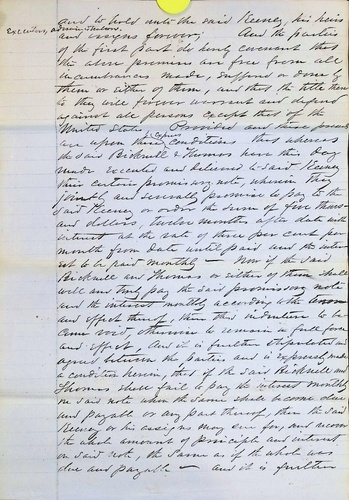 and to hold unto the said Keeney, his heirs
Executors, administrators,
and assigns forever; And the parties
of the first part do hereby covenant that
the above premises are free from all
incumbrances made, suffered or done by
them or either of them, and that the title thereto
they will forever warrant and defend
against all persons except that of the
United States Provided and these presents
are upon these express conditions that whereas
the said Bicknell & Thomas have this day
made executed and delivered to said Keeney
their certain promissory note, wherein they
jointly and severally promise to pay to the
said Keeney or order the sum of five thous-
and dollars, twelve months after date with
interest at the rate of three per cent per
month from date until paid and the inter-
est to be paid monthly — Now if the said
Bicknell and Thomas or either of them shall
well and truly pay the said promissory note
and the interest monthly according to the
and effect thereof, then this indenture to be-
come void, otherwise to remain in full force
and effect, and it is further stipulated and
agreed between the parties and is expressly made
a condition herein, that if the said Bicknell and
Thomas shall fail to pay the interest monthly
on said note when the same shall become due
and payable or any part thereof, then the said
Keeney or his assigns may sue for, and recover
the whole amount of principle and interest
on said note, the same as if the whole was
due and payable — and it is further